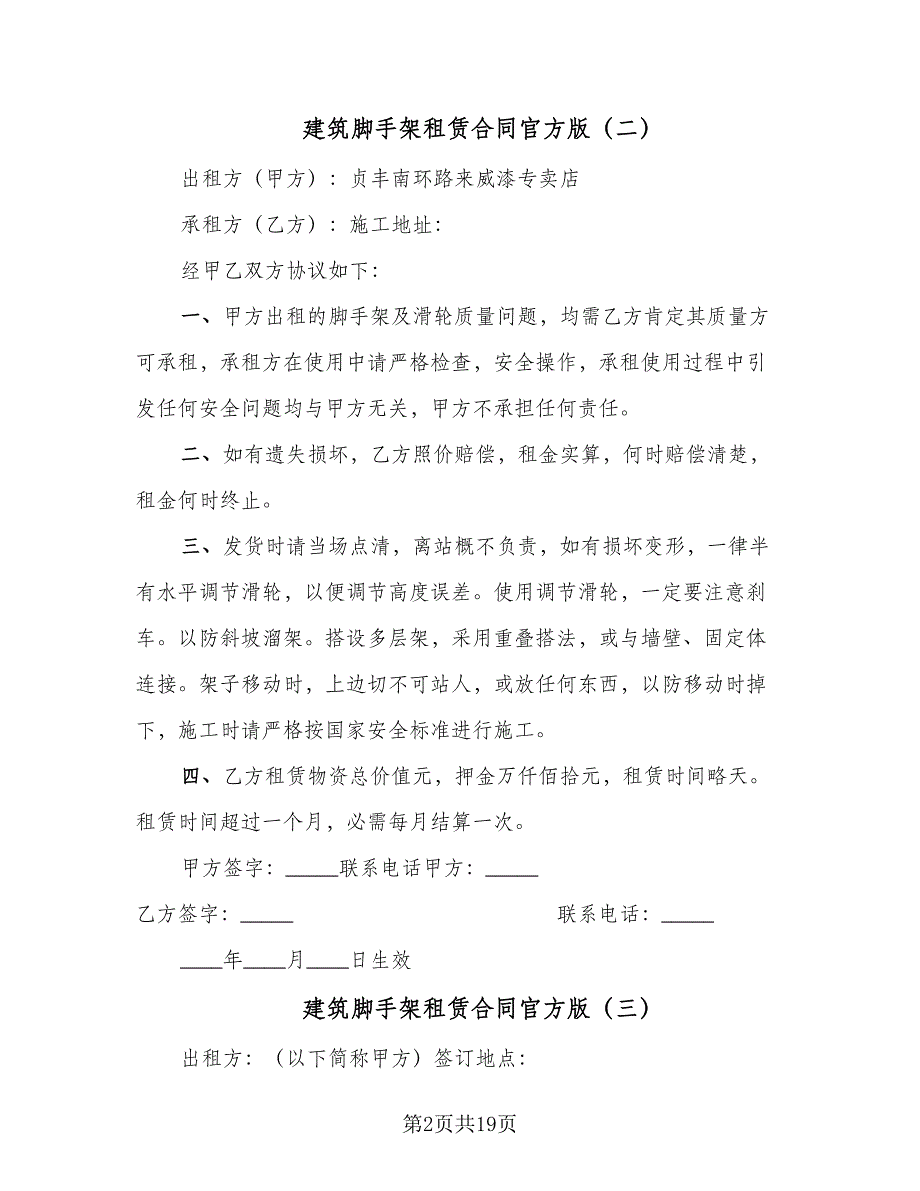 建筑脚手架租赁合同官方版（二）
出租方（甲方）：贞丰南环路来威漆专卖店
承租方（乙方）：施工地址：
经甲乙双方协议如下：
一、甲方出租的脚手架及滑轮质量问题，均需乙方肯定其质量方
可承租，承租方在使用中请严格检查，安全操作，承租使用过程中引
发任何安全问题均与甲方无关，甲方不承担任何责任。
二、如有遗失损坏，乙方照价赔偿，租金实算，何时赔偿清楚，
租金何时终止。
三、发货时请当场点清，离站概不负责，如有损坏变形，一律半
有水平调节滑轮，以便调节高度误差。使用调节滑轮，一定要注意刹
车。以防斜坡溜架。搭设多层架，采用重叠搭法，或与墙壁、固定体
连接。架子移动时，上边切不可站人，或放任何东西，以防移动时掉
下，施工时请严格按国家安全标准进行施工。
四、乙方租赁物资总价值元，押金万仟佰拾元，租赁时间略天。
租赁时间超过一个月，必需每月结算一次。
甲方签字：_____联系电话甲方：_____
乙方签字：_____ 联系电话：_____
____年____月____日生效
建筑脚手架租赁合同官方版（三）
出租方：（以下简称甲方）签订地点：
第2页共19页